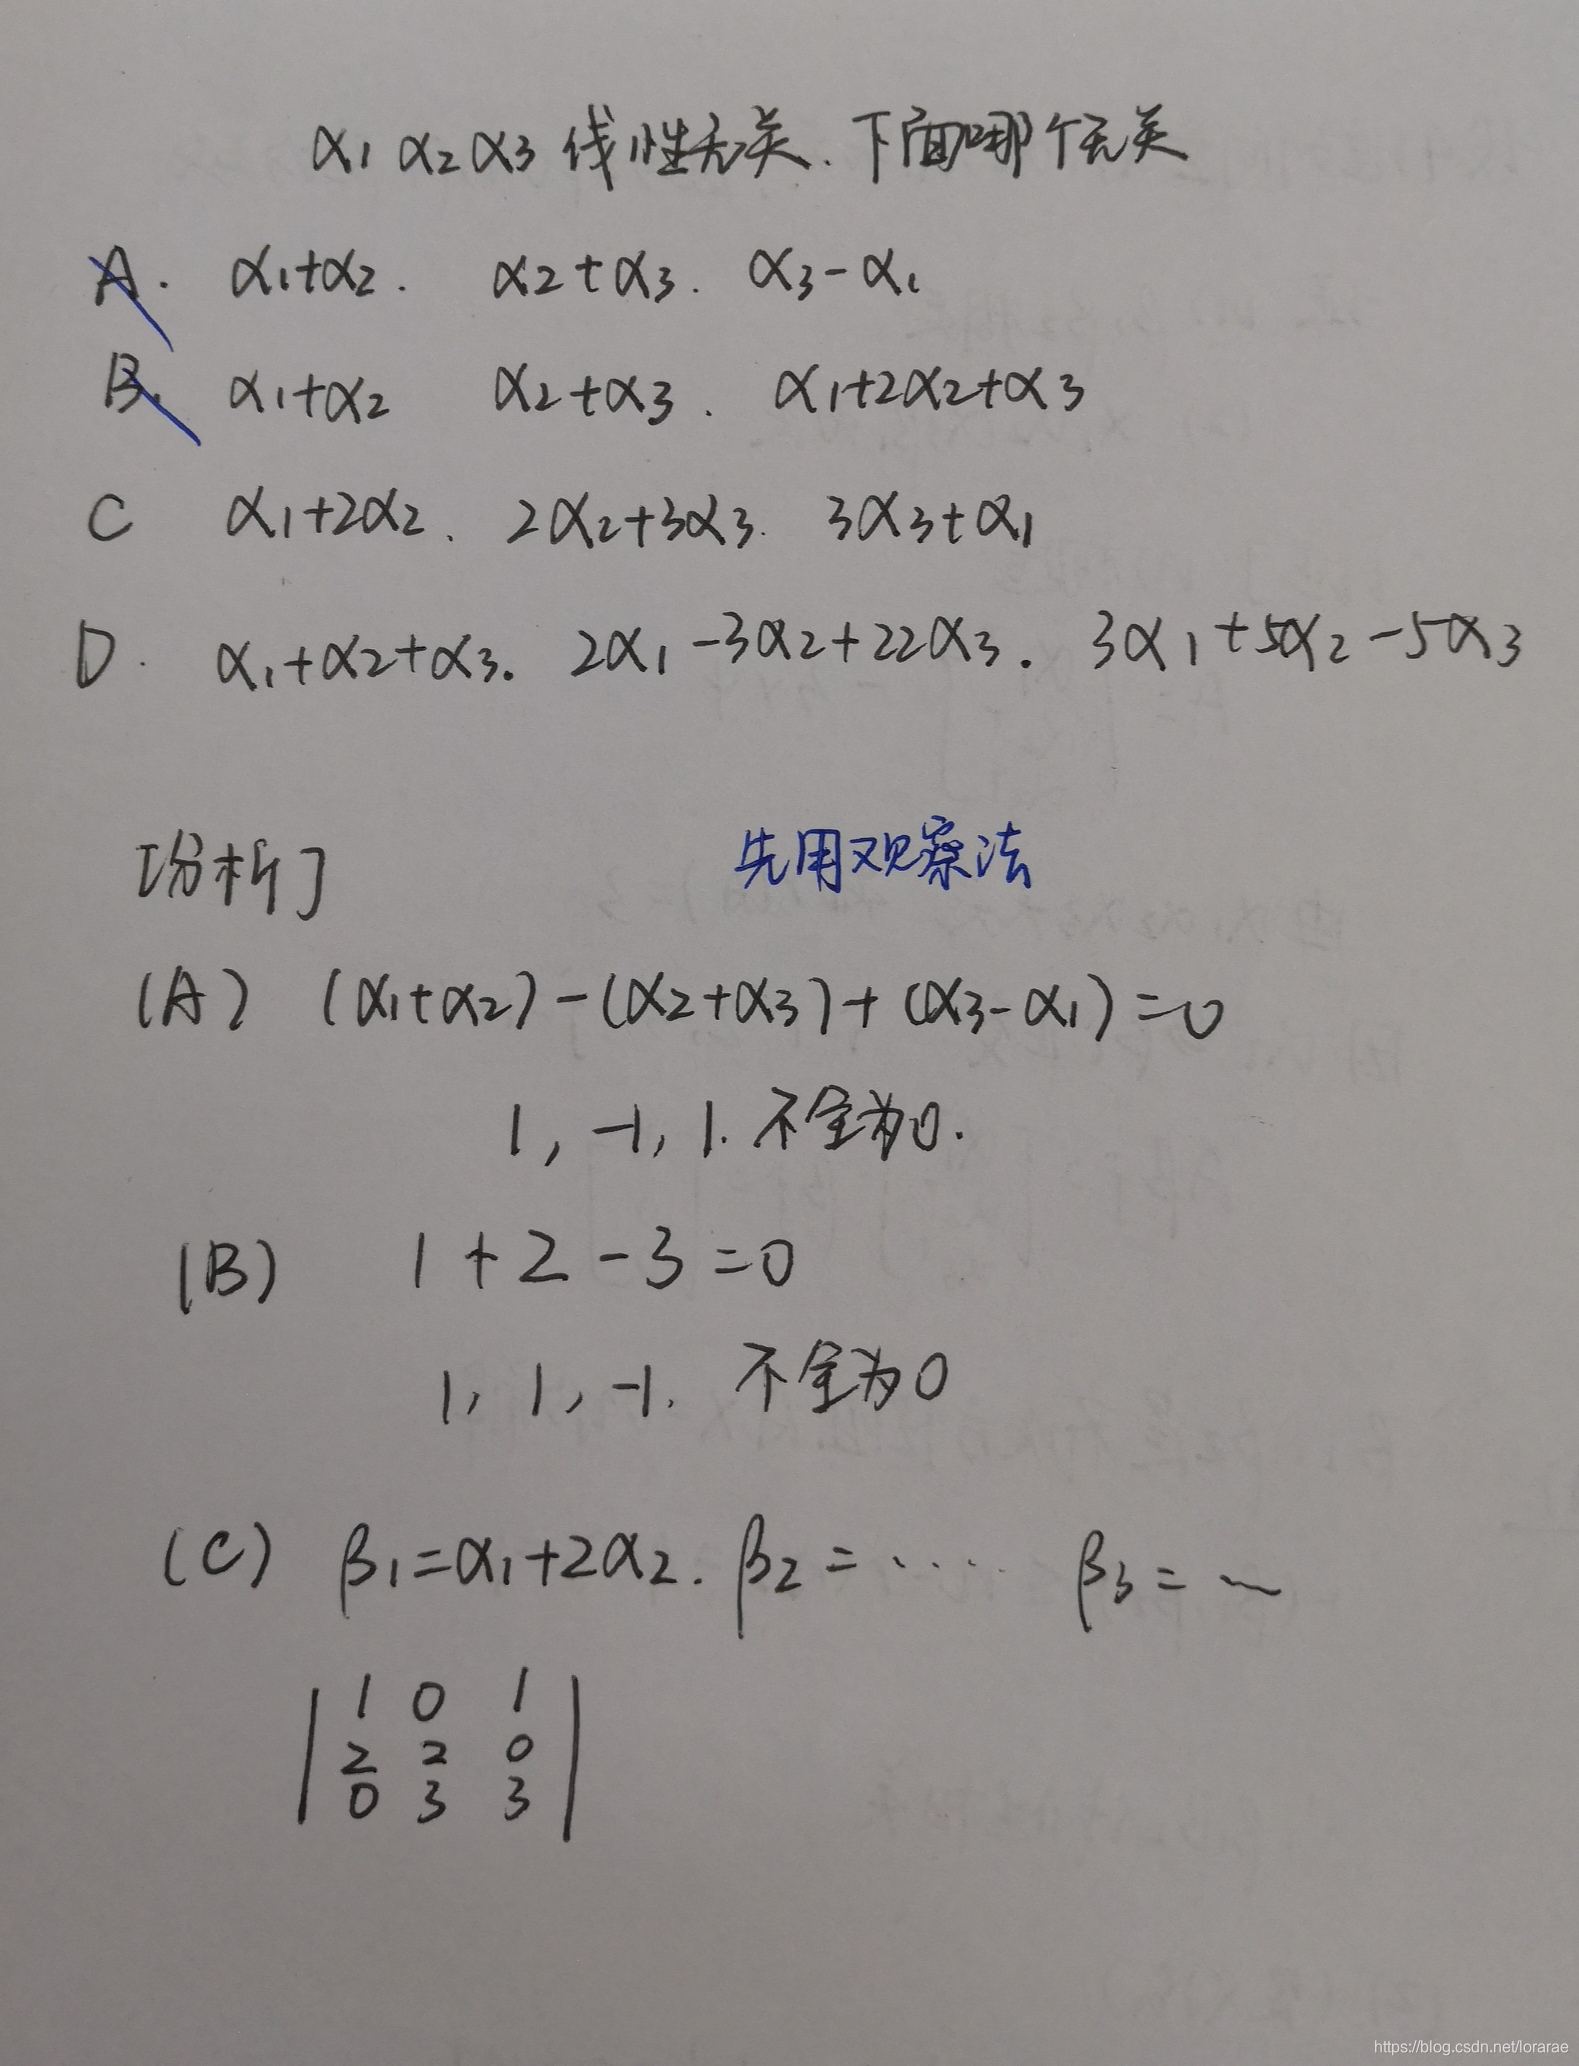 α1 α2 α3 线性无关. 下面哪个无关
A. α1+α2. α2+α3. α3-α1
B. α1+α2 α2+α3. α1+2α2+α3
C α1+2α2. 2α2+3α3. 3α3+α1
D. α1+α2+α3. 2α1-3α2+22α3. 3α1+5α2-5α3
[分析] 先用观察法
(A) (α1+α2)-(α2+α3)+(α3-α1)=0
1, -1, 1. 不全为0.
(B) 1+2-3=0
1, 1, -1. 不全为0
(C) β1=α1+2α2. β2=.... β3=~
| 1 0 1 |
| 2 2 0 |
| 0 3 3 |
https://blog.csdn.net/lorarae